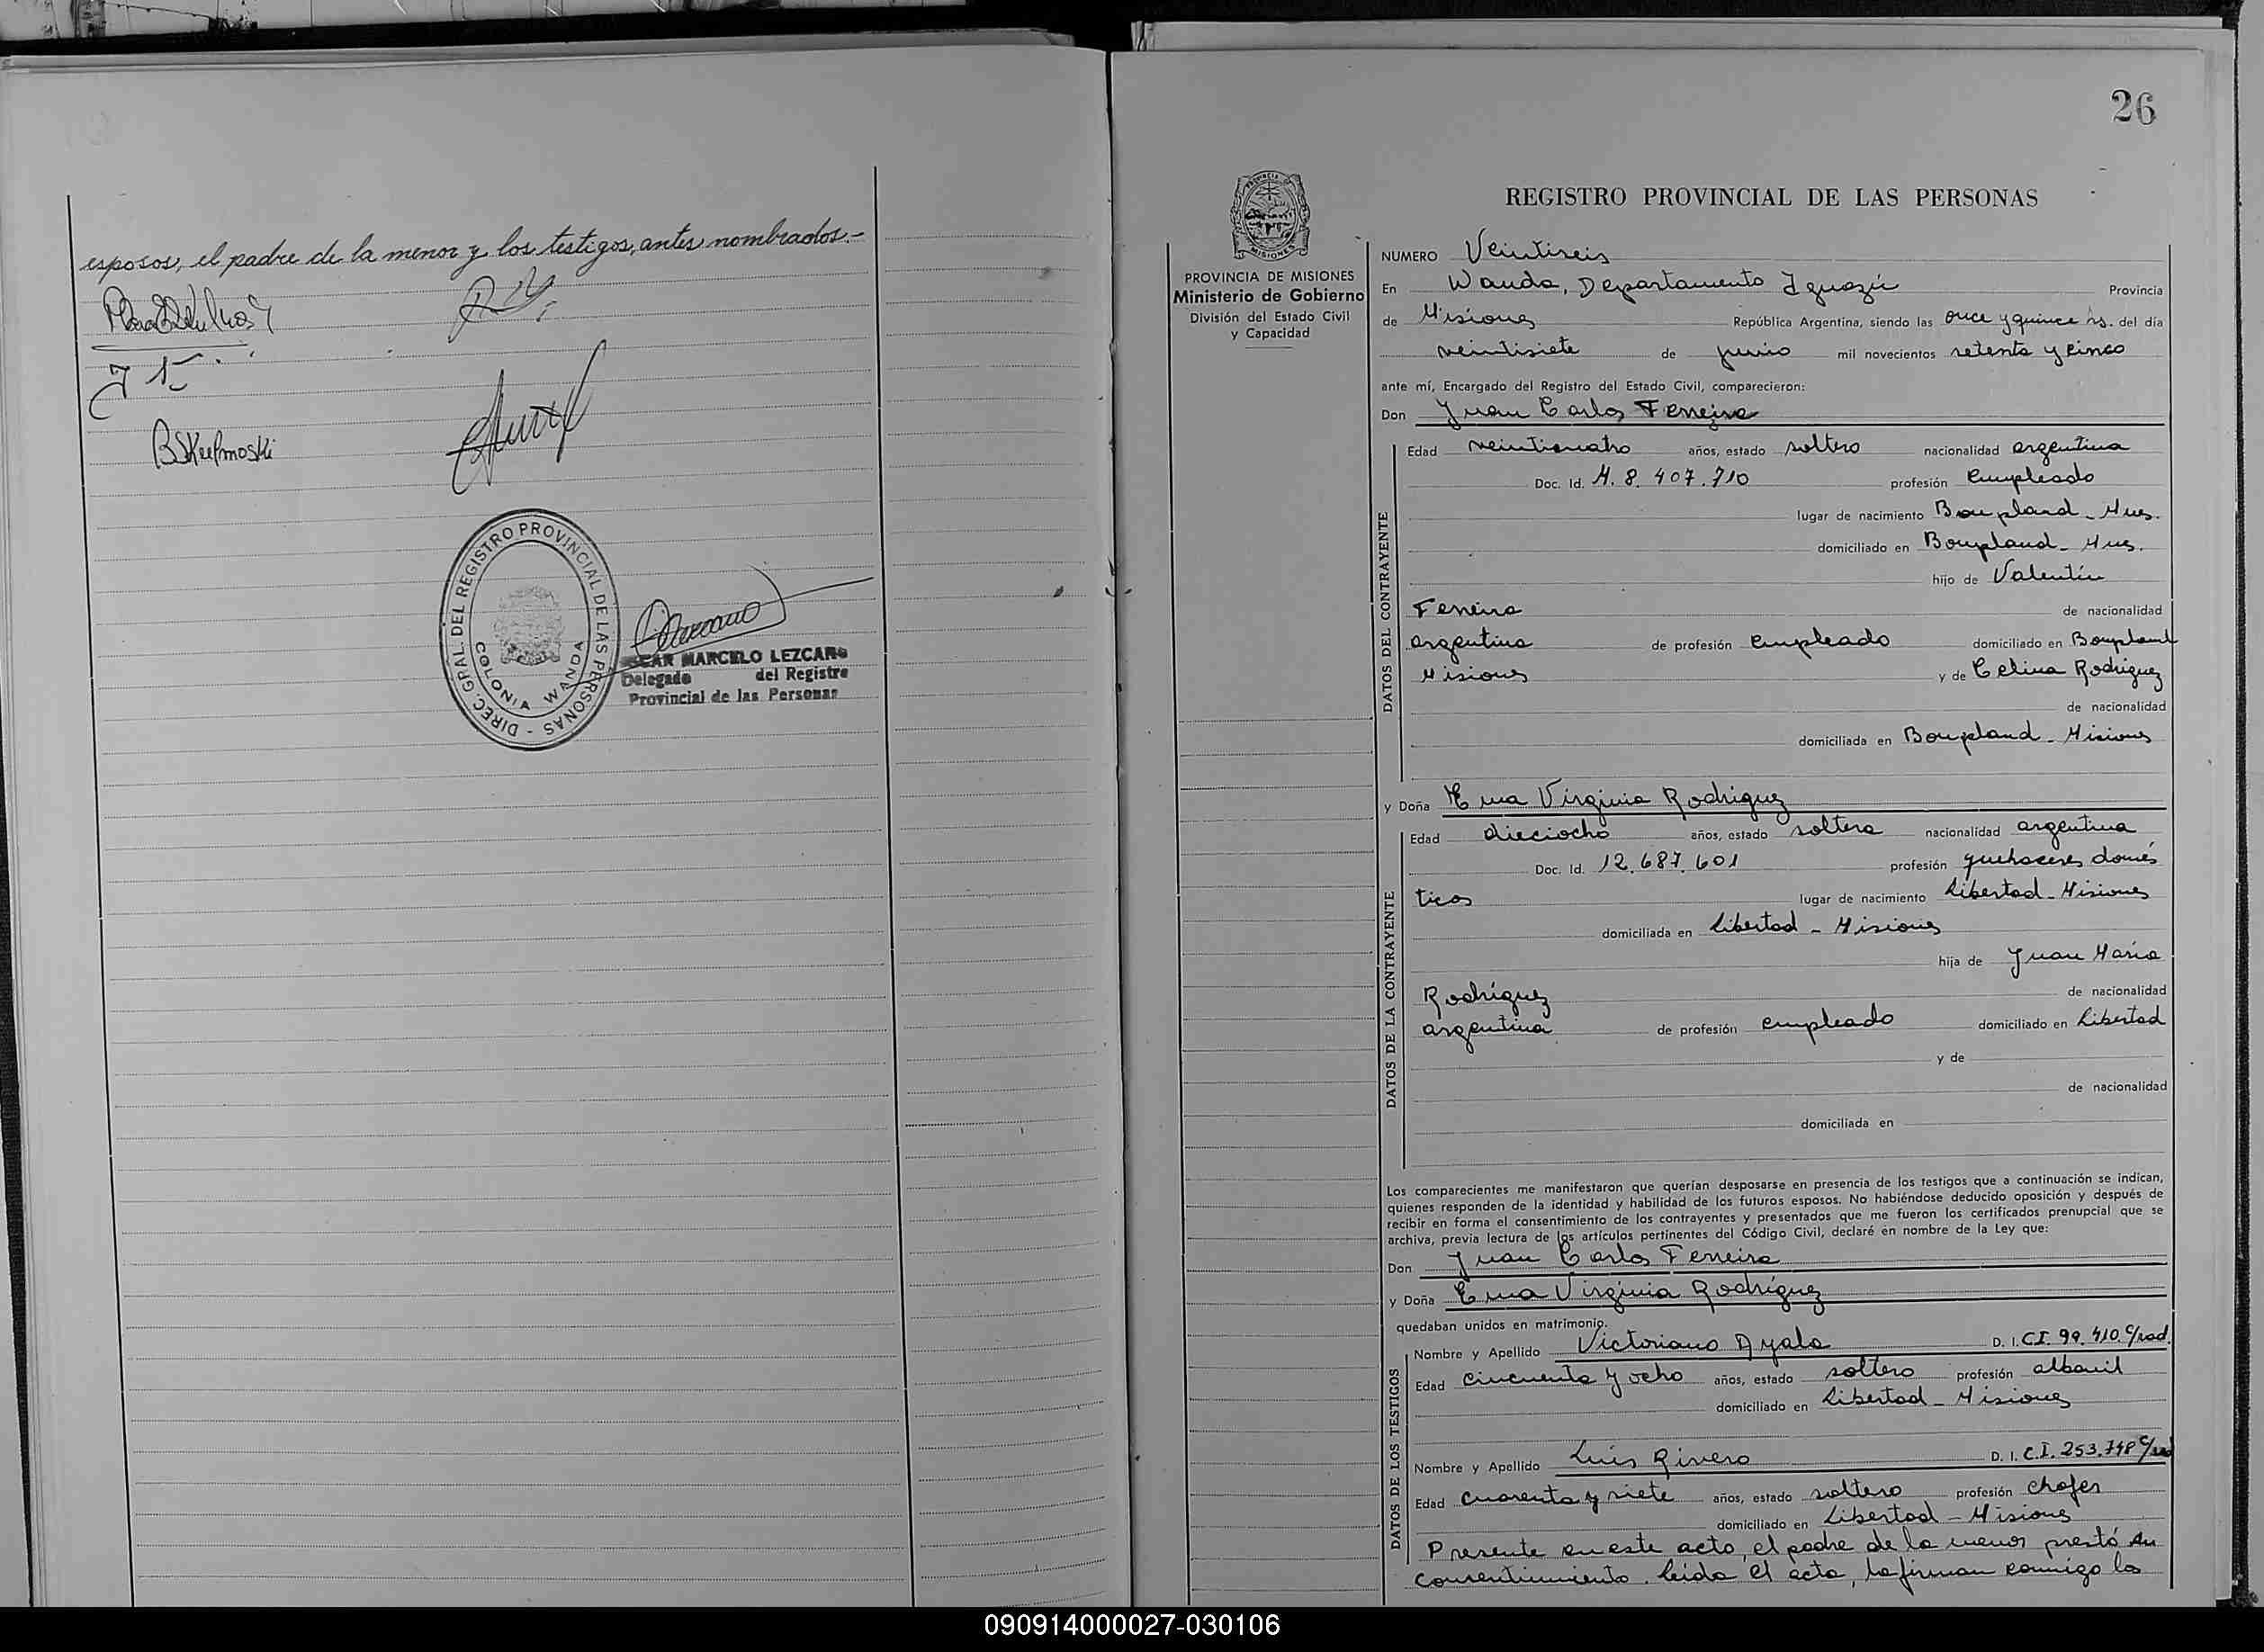 esposos, el padre de la menor y los testigos, antes nombrados.-
BSKupmoski
DIREC. GRAL. DEL REGISTRO PROVINCIAL DE LAS PERSONAS -
COLONIA WANDA
OSCAR MARCELO LEZCANO
Delegado del Registro
Provincial de las Personas
26
REGISTRO PROVINCIAL DE LAS PERSONAS
PROVINCIA DE MISIONES
Ministerio de Gobierno
División del Estado Civil
y Capacidad
NUMERO Veintiseis
En Wanda, Departamento Iguazú Provincia
de Misiones República Argentina, siendo las once y quince hs. del día
veintisiete de junio mil novecientos setenta y cinco
ante mí, Encargado del Registro del Estado Civil, comparecieron:
Don Juan Carlos Ferreira
DATOS DEL CONTRAYENTE
Edad veinticuatro años, estado soltero nacionalidad argentina
Doc. Id. M. 8. 407.710 profesión Empleado
lugar de nacimiento Bompland - Mnes.
domiciliado en Bompland - Mnes.
hijo de Valentín
Ferreira de nacionalidad
argentina de profesión empleado domiciliado en Bompland
Misiones y de Celina Rodriguez
de nacionalidad
domiciliada en Bompland - Misiones
y Doña Ema Virginia Rodriguez
DATOS DE LA CONTRAYENTE
Edad dieciocho años, estado soltera nacionalidad argentina
Doc. Id. 12.687.601 profesión quehaceres domés
ticos lugar de nacimiento Libertad - Misiones
domiciliada en Libertad - Misiones
hija de Juan María
Rodríguez de nacionalidad
argentina de profesión empleado domiciliado en Libertad
y de
de nacionalidad
domiciliada en
Los comparecientes me manifestaron que querían desposarse en presencia de los testigos que a continuación se indican,
quienes responden de la identidad y habilidad de los futuros esposos. No habiéndose deducido oposición y después de
recibir en forma el consentimiento de los contrayentes y presentados que me fueron los certificados prenupcial que se
archiva, previa lectura de los artículos pertinentes del Código Civil, declaré en nombre de la Ley que:
Don Juan Carlos Ferreira
y Doña Ema Virginia Rodríguez
quedaban unidos en matrimonio.
DATOS DE LOS TESTIGOS
Nombre y Apellido Victoriano Ayala D. I. C.I. 99.410 c/rad.
Edad cincuenta y ocho años, estado soltero profesión albañil
domiciliado en Libertad - Misiones
Nombre y Apellido Luis Rivero D. I. C.I. 253.748 c/rad
Edad cuarenta y siete años, estado soltero profesión chofer
domiciliado en Libertad - Misiones
Presente en este acto, el padre de la menor prestó su
consentimiento. Leida el acta, la firman conmigo los
090914000027-030106